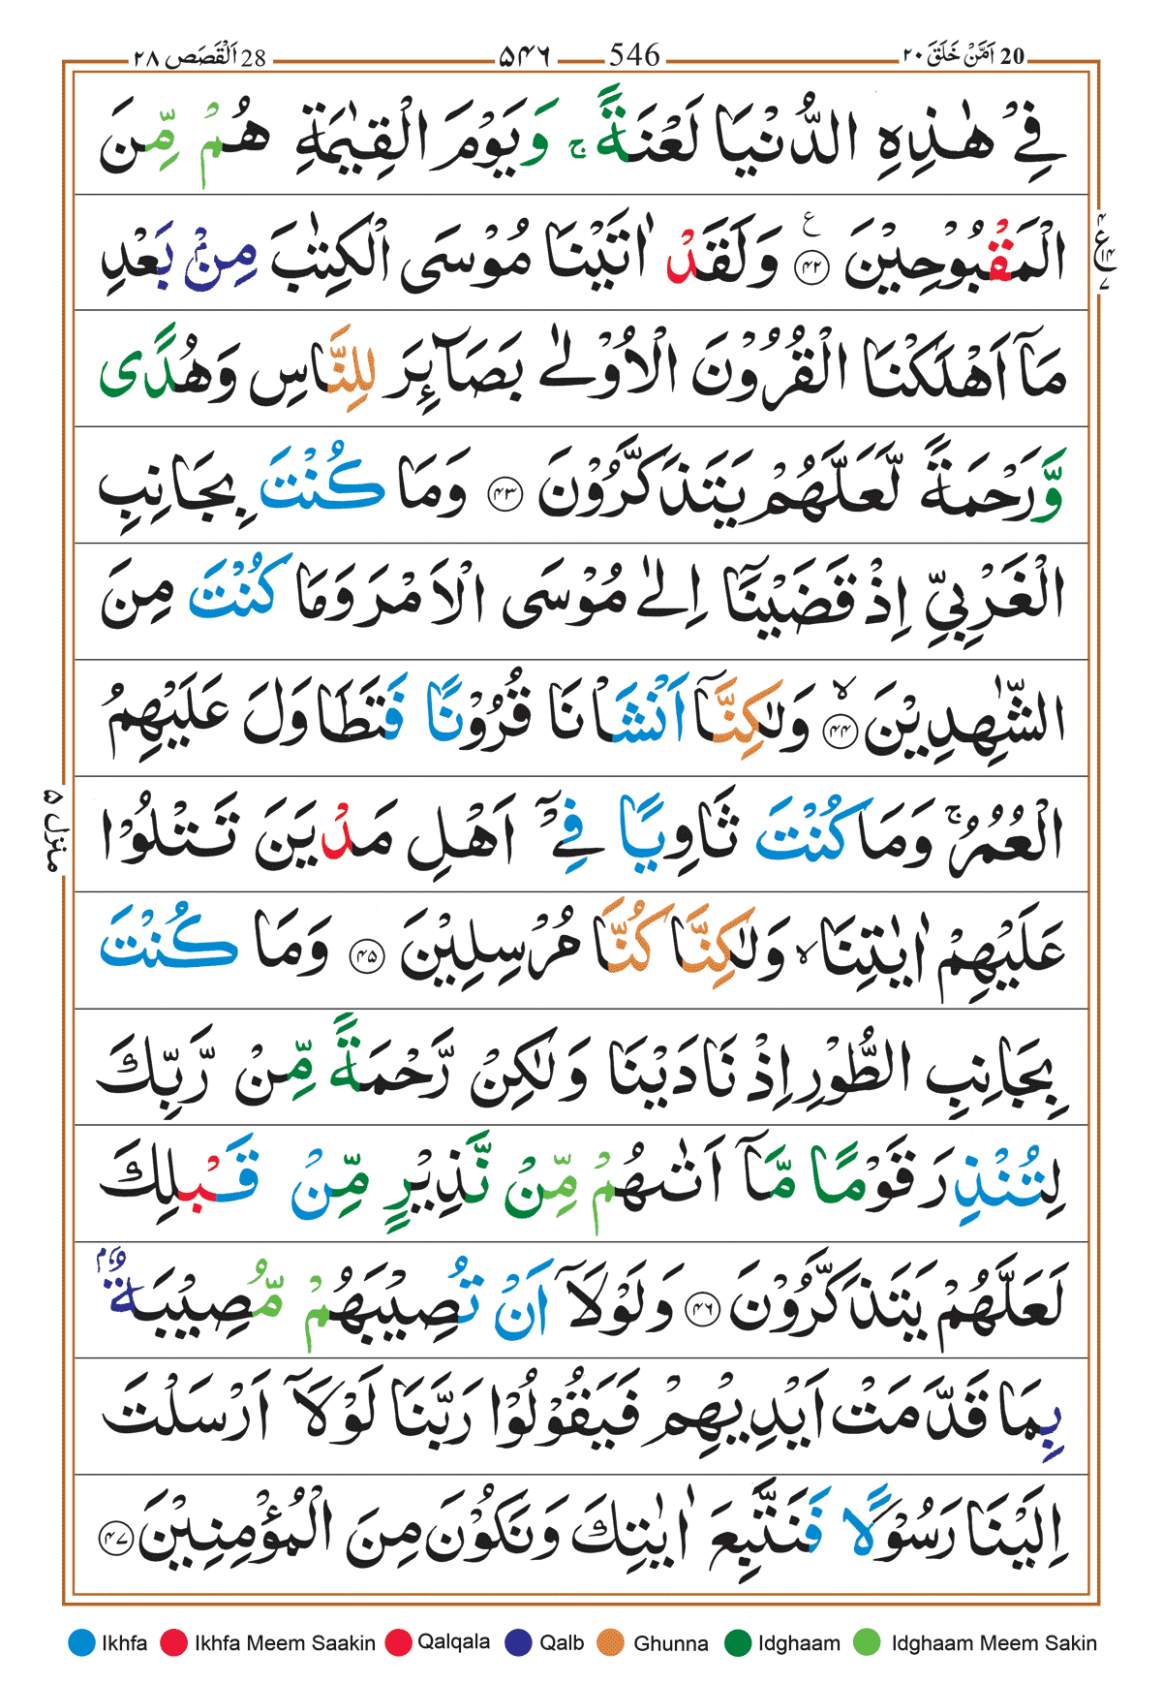 28 اَلْقَصَص ٢٨
546 ۵۴۶
20 اَمَّنْ خَلَقَ ٢٠
فِیْ هٰذِهِ الدُّنْیَا لَعْنَةً ۚ وَیَوْمَ الْقِیٰمَةِ هُمْ مِّنَ
الْمَقْبُوْحِیْنَ ﴿۴۲﴾ ع وَلَقَدْ اٰتَیْنَا مُوْسَی الْكِتٰبَ مِنْۢ بَعْدِ
مَاۤ اَهْلَكْنَا الْقُرُوْنَ الْاُوْلٰی بَصَآئِرَ لِلنَّاسِ وَهُدًی
وَّرَحْمَةً لَّعَلَّهُمْ یَتَذَكَّرُوْنَ ﴿۴۳﴾ وَمَا كُنْتَ بِجَانِبِ
الْغَرْبِیِّ اِذْ قَضَیْنَاۤ اِلٰی مُوْسَی الْاَمْرَ وَمَا كُنْتَ مِنَ
الشّٰهِدِیْنَ ﴿۴۴﴾ ۙ وَلٰكِنَّاۤ اَنْشَاْنَا قُرُوْنًا فَتَطَاوَلَ عَلَیْهِمُ
الْعُمُرُ ۚ وَمَا كُنْتَ ثَاوِیًا فِیْۤ اَهْلِ مَدْیَنَ تَتْلُوْا
عَلَیْهِمْ اٰیٰتِنَا ۙ وَلٰكِنَّا كُنَّا مُرْسِلِیْنَ ﴿۴۵﴾ وَمَا كُنْتَ
بِجَانِبِ الطُّوْرِ اِذْ نَادَیْنَا وَلٰكِنْ رَّحْمَةً مِّنْ رَّبِّكَ
لِتُنْذِرَ قَوْمًا مَّاۤ اَتٰىهُمْ مِّنْ نَّذِیْرٍ مِّنْ قَبْلِكَ
لَعَلَّهُمْ یَتَذَكَّرُوْنَ ﴿۴۶﴾ وَلَوْلَاۤ اَنْ تُصِیْبَهُمْ مُّصِیْبَةٌۢ
بِمَا قَدَّمَتْ اَیْدِیْهِمْ فَیَقُوْلُوْا رَبَّنَا لَوْلَاۤ اَرْسَلْتَ
اِلَیْنَا رَسُوْلًا فَنَتَّبِعَ اٰیٰتِكَ وَنَكُوْنَ مِنَ الْمُؤْمِنِیْنَ ﴿۴۷﴾
۴ ع ۱۴ ۷
منزل ۵
Ikhfa Ikhfa Meem Saakin Qalqala Qalb Ghunna Idghaam Idghaam Meem Sakin